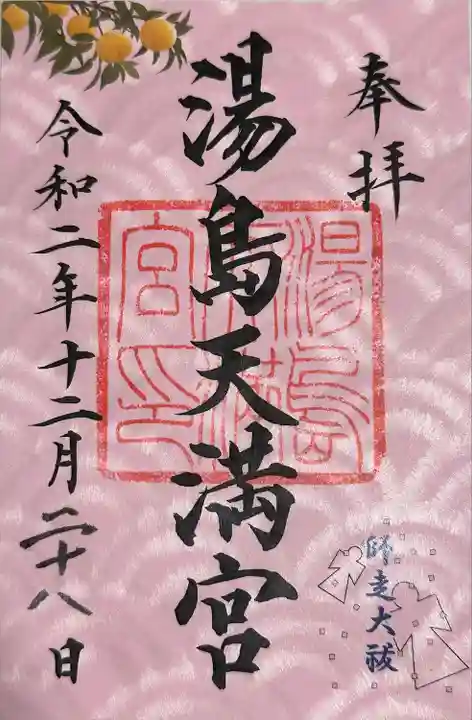 奉拝
湯島天満宮
湯島天満宮印
令和二年十二月二十八日
師走大祓